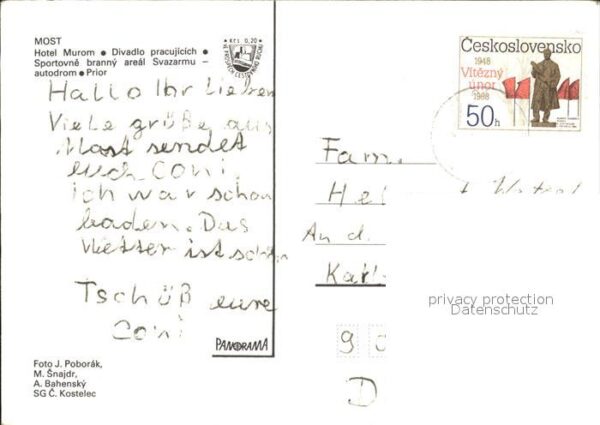 MOST
Hotel Murom ● Divadlo pracujících ●
Sportovně branný areál Svazarmu –
autodrom ● Prior
Kčs. 0,20
Hallo Ihr Lieben
Viele grüße aus
Most sendet
euch Coni.
ich war schon
baden. Das
Wetter ist schön
Tschüß eure
Coni
PANORAMA
Foto J. Poborák,
M. Šnajdr,
A. Bahenský
SG Č. Kostelec
Československo
1948
Vítězný
únor
1988
50h
Fam.
An d.
D
privacy protection
Datenschutz